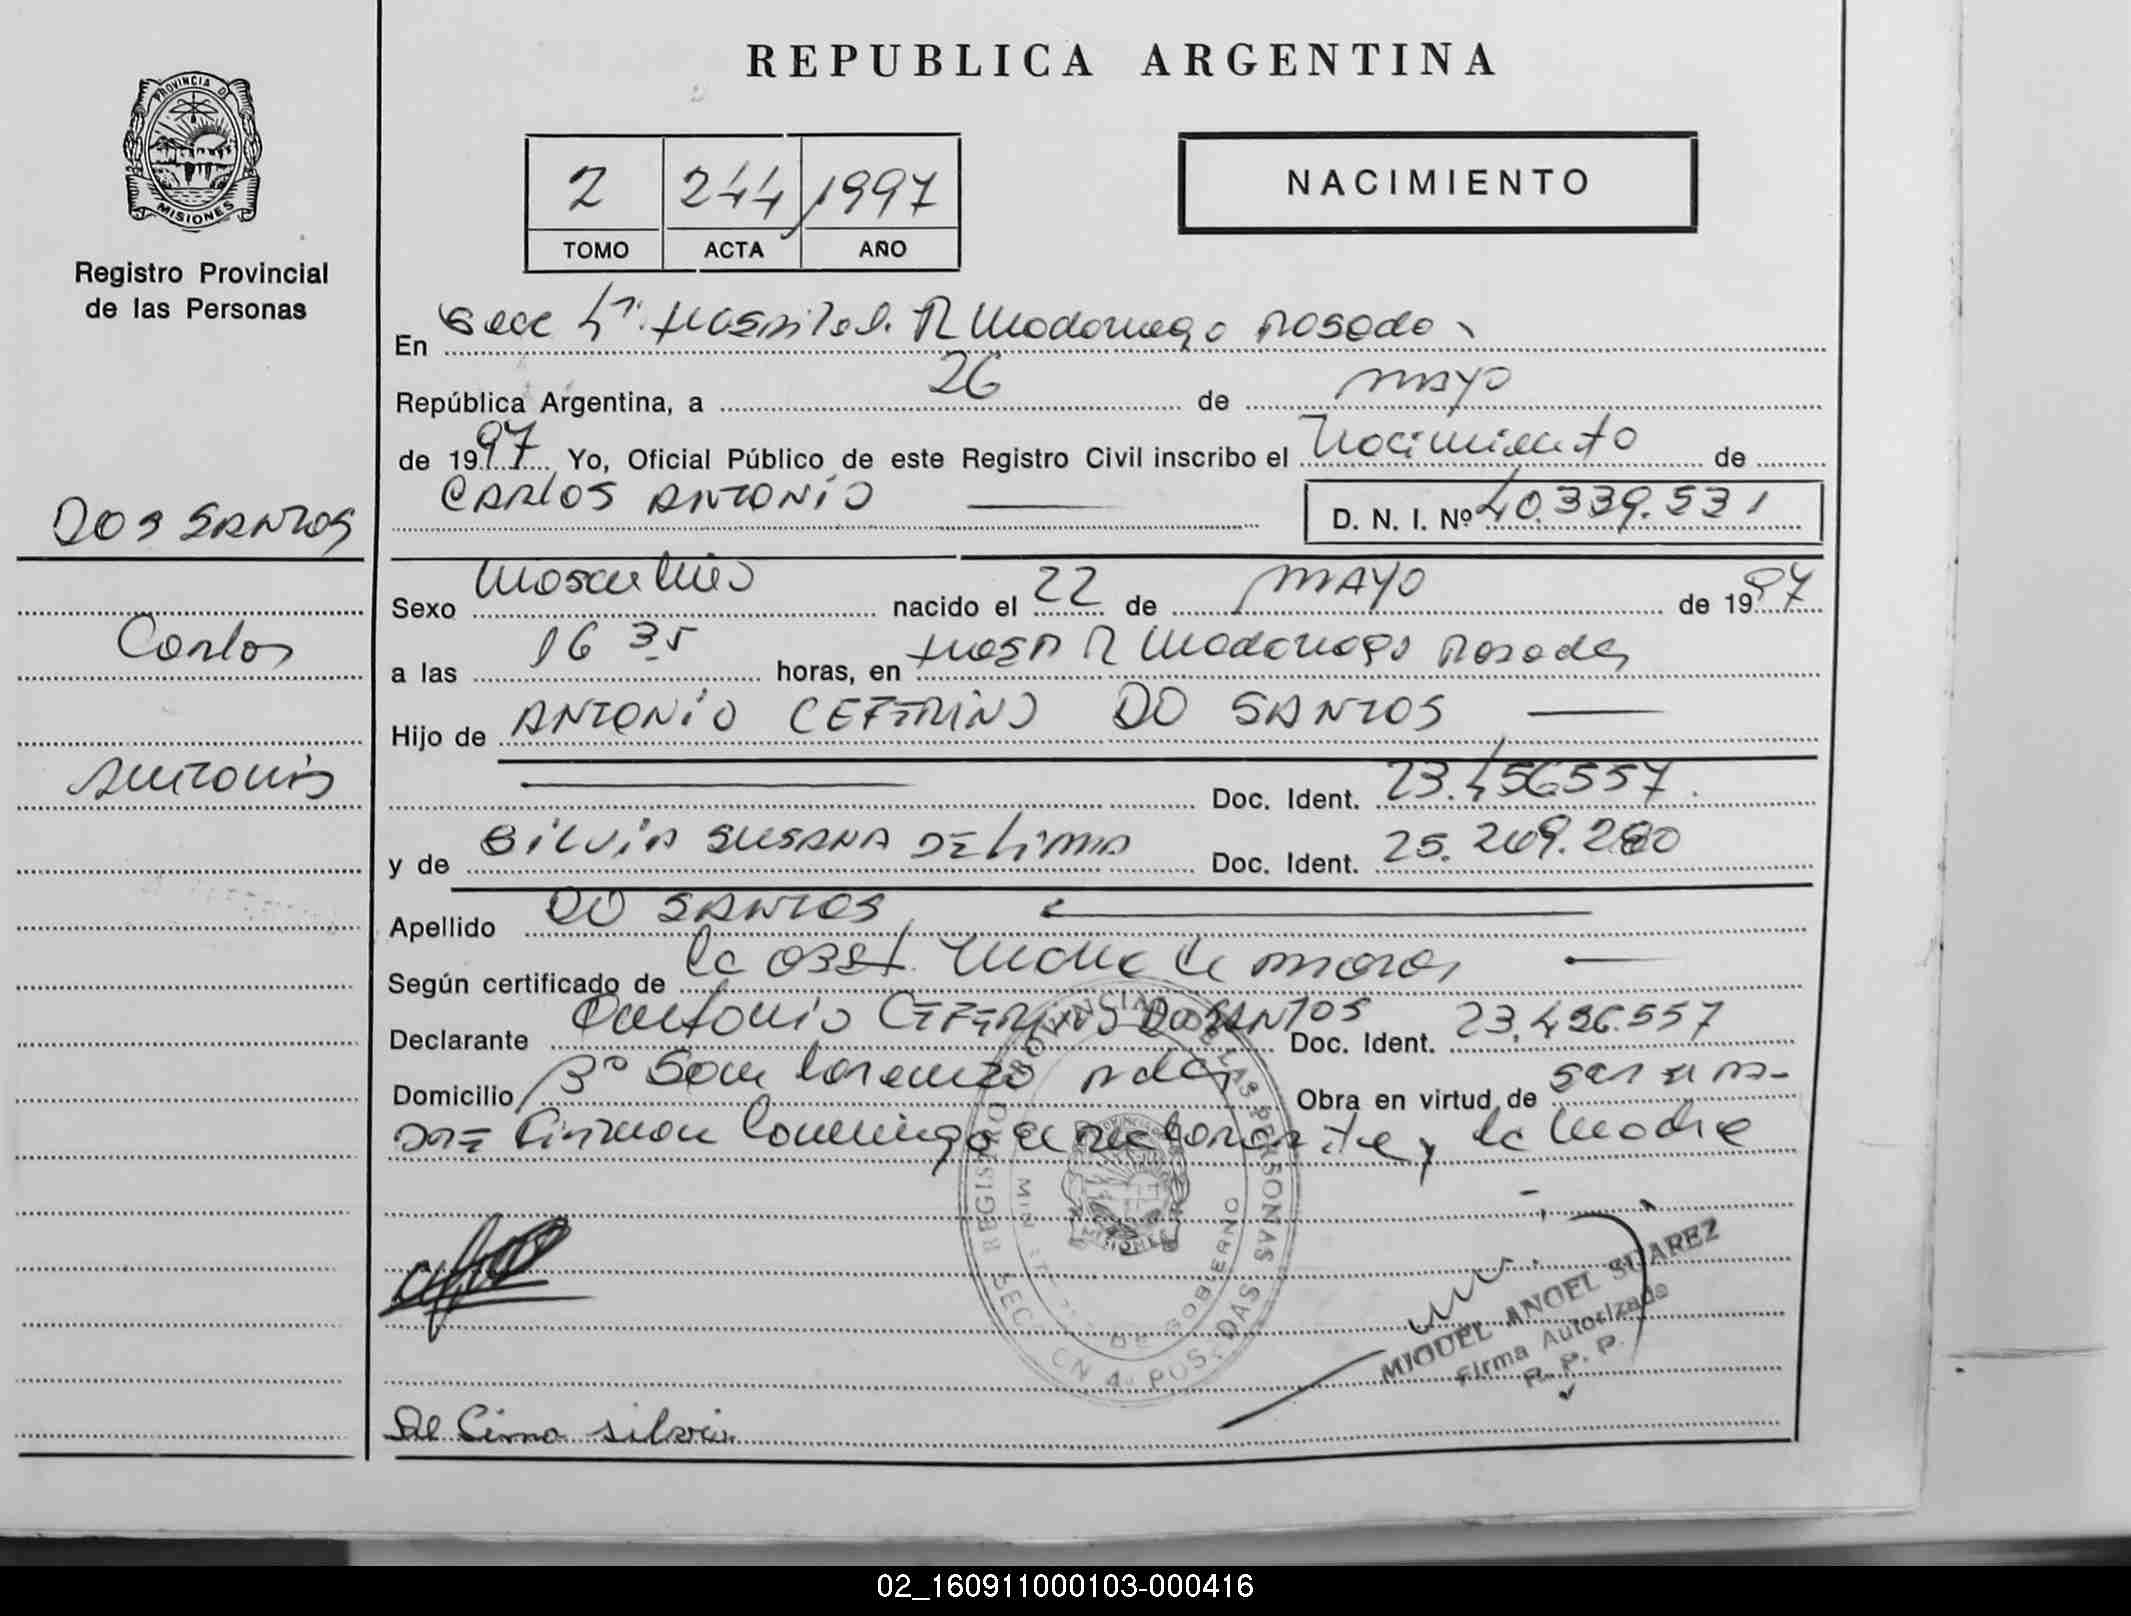 REPUBLICA ARGENTINA
PROVINCIA DE
MISIONES
Registro Provincial
de las Personas
2 244 1997
TOMO ACTA AÑO
NACIMIENTO
En Secc 4ª. Hospital. R Madariaga Posadas
República Argentina, a 26 de mayo
de 1997 Yo, Oficial Público de este Registro Civil inscribo el Nacimiento de
CARLOS ANTONIO D. N. I. Nº 40.339.531
DOS SANTOS
Carlos
Antonio
Sexo Masculino nacido el 22 de MAYO de 1997
a las 16 35 horas, en Hosp R Madariaga Posadas
Hijo de ANTONIO CEFERINO DO SANTOS
Doc. Ident. 23.456557.
y de SILVIA SUSANA DE LIMA Doc. Ident. 25.269.280
Apellido DO SANTOS
Según certificado de la Obst.
Declarante Antonio CEFERINO DO SANTOS Doc. Ident. 23.456.557
Domicilio Bº San Lorenzo Pdas Obra en virtud de ser el pa-
dre Firman conmigo el declarante y la Madre
REGISTRO PROVINCIAL DE LAS PERSONAS
MINISTERIO DE GOBIERNO
MISIONES
SECCION 4ª POSADAS
MIGUEL ANGEL SUAREZ
Firma Autorizada
R. P. P.
De Lima silvia
02_160911000103-000416